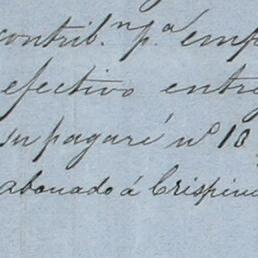 contrib.n p.a emp
efectivo entre
su pagaré nº 10
abonado á Crispin